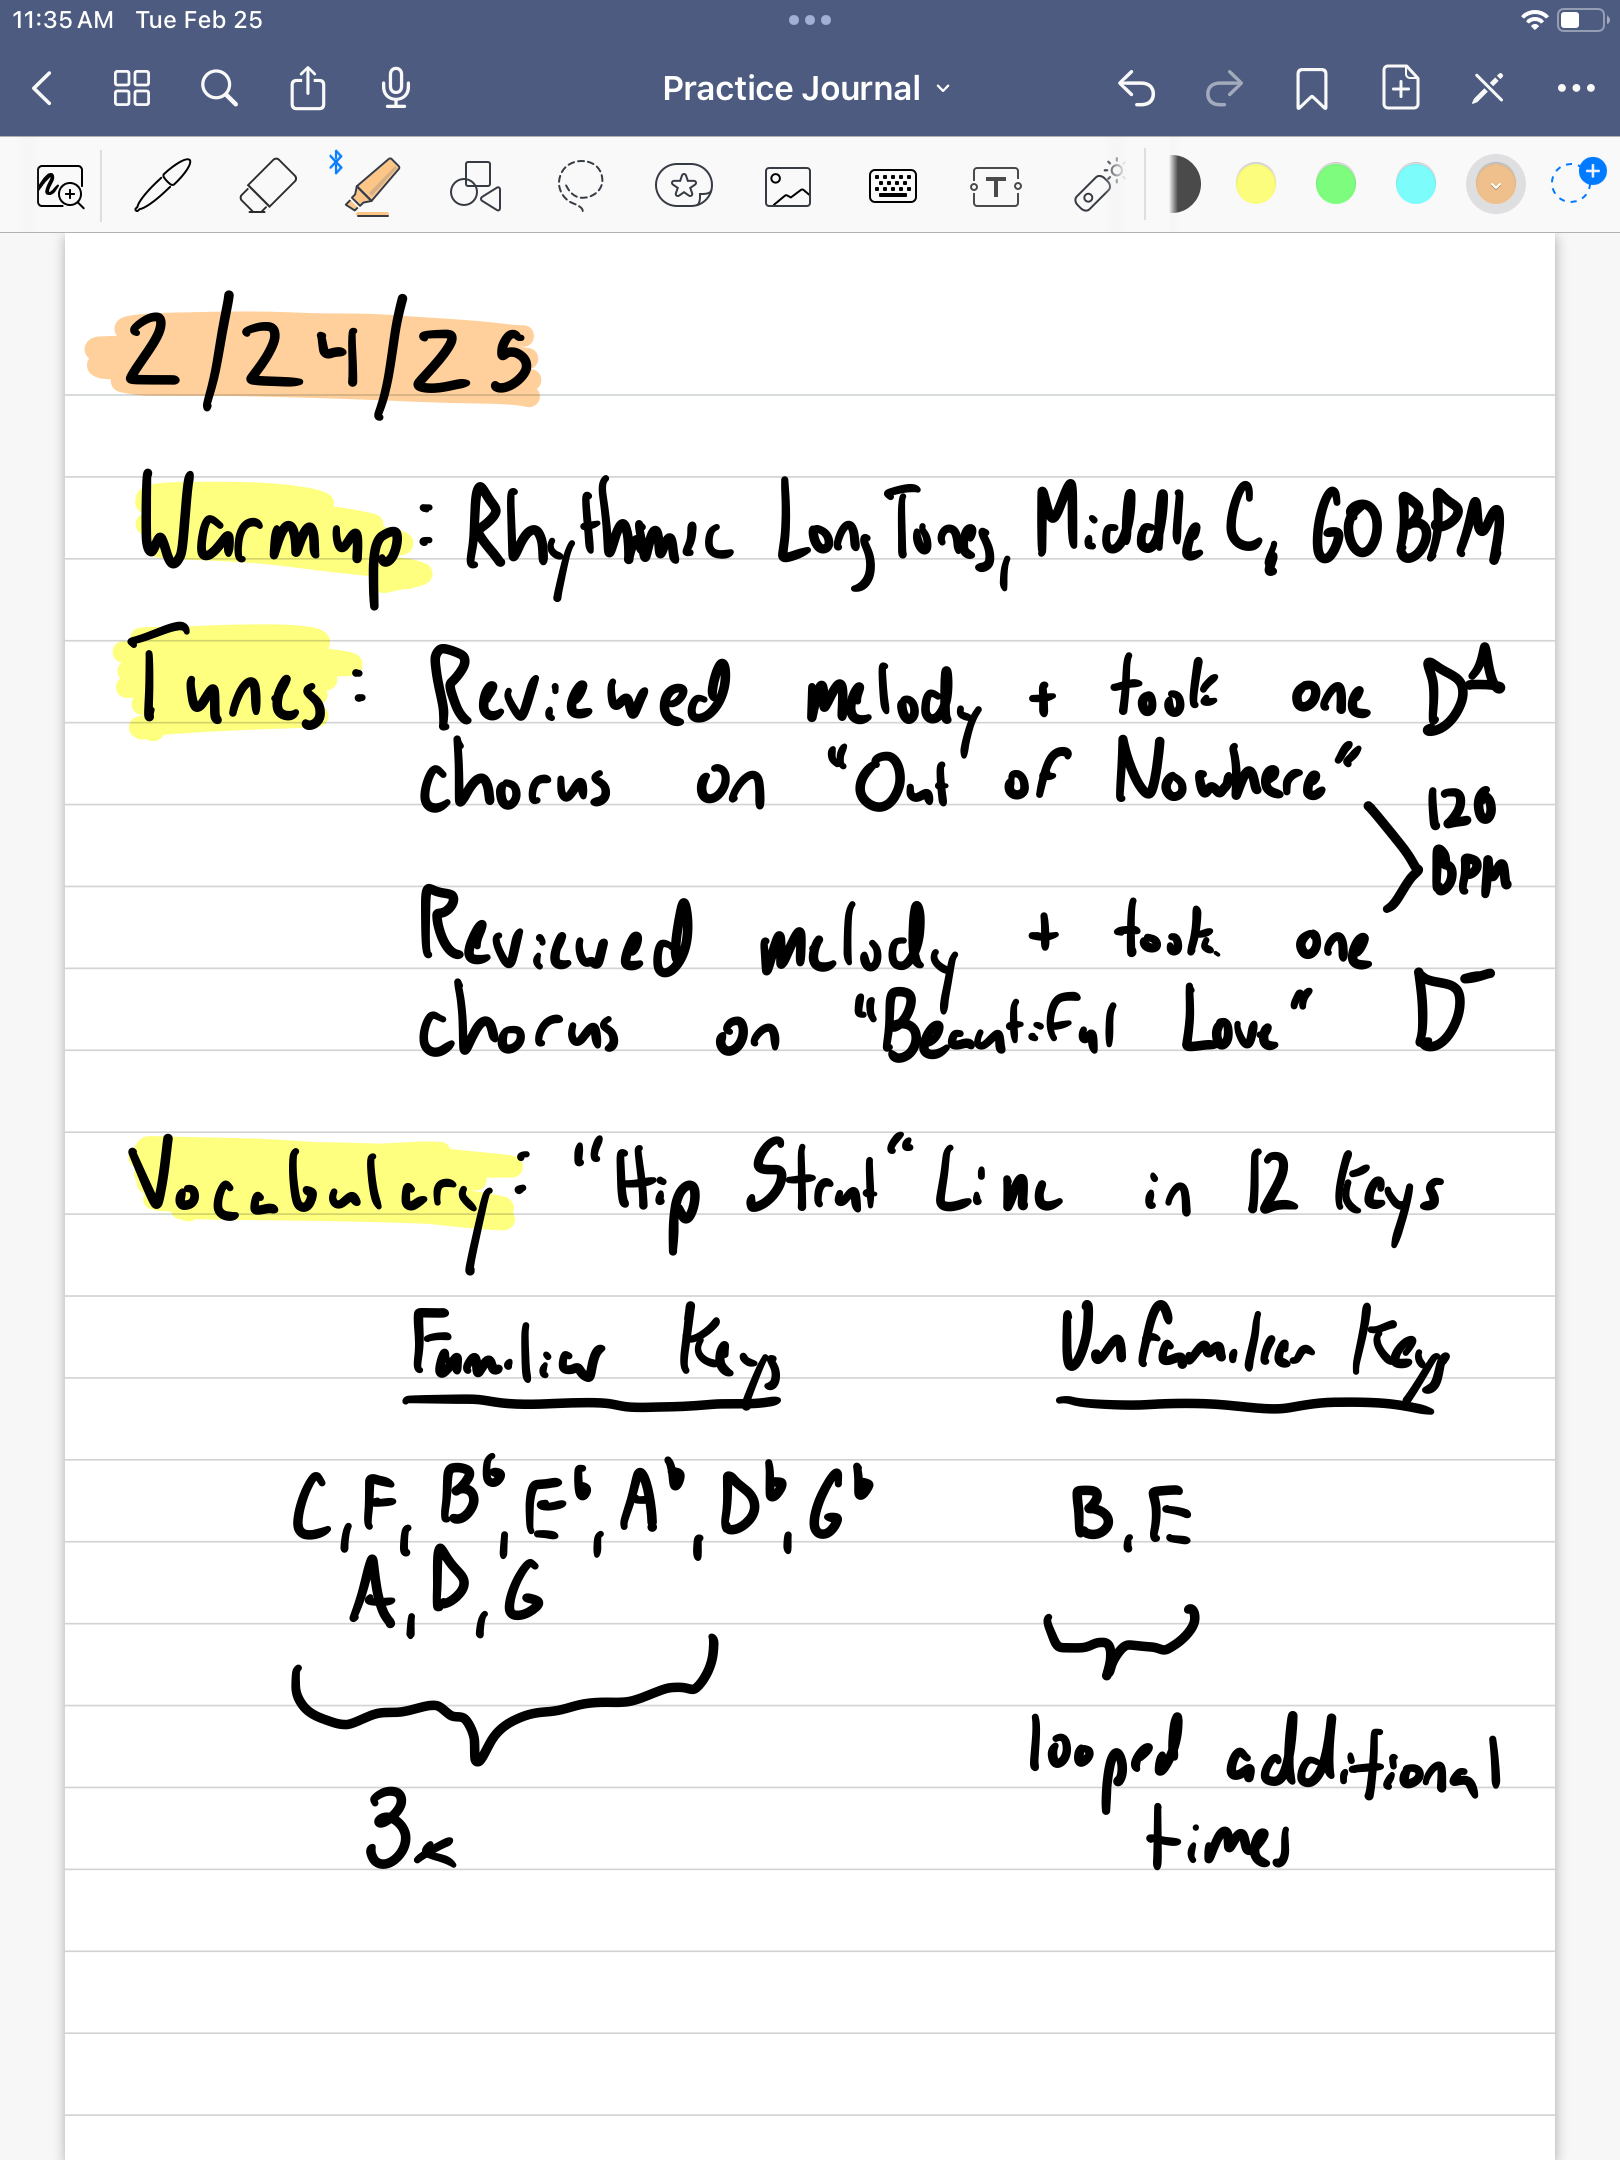 11:35 AM Tue Feb 25
Practice Journal
T
2/24/25
Warmup: Rhythmic Long Tones, Middle C, 60 BPM
Tunes: Reviewed melody + took one D△
chorus on "Out of Nowhere"
120
BPM
Reviewed melody + took one
chorus on "Beautiful Love" D-
Vocabulary: "Hip Strut" Line in 12 keys
Familiar Keys Unfamiliar Keys
C, F, B♭, E♭, A♭, D♭, G♭ B, E
A, D, G
looped additional
3x times